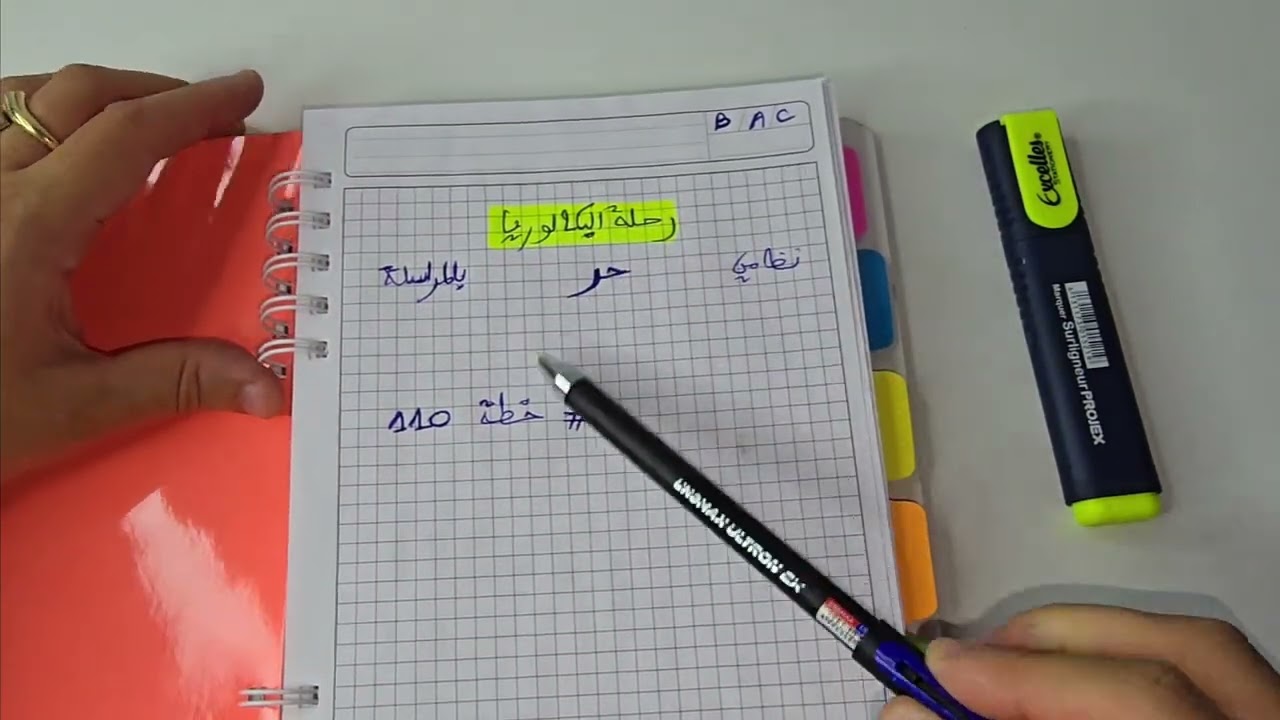 B A C
رحلة البكالوريا
نظامي حر بالمراسلة
# خطة 110
LINSMAX ULTRON EX
Excelles
STATIONERY
Marquer Surligneur PROJEX